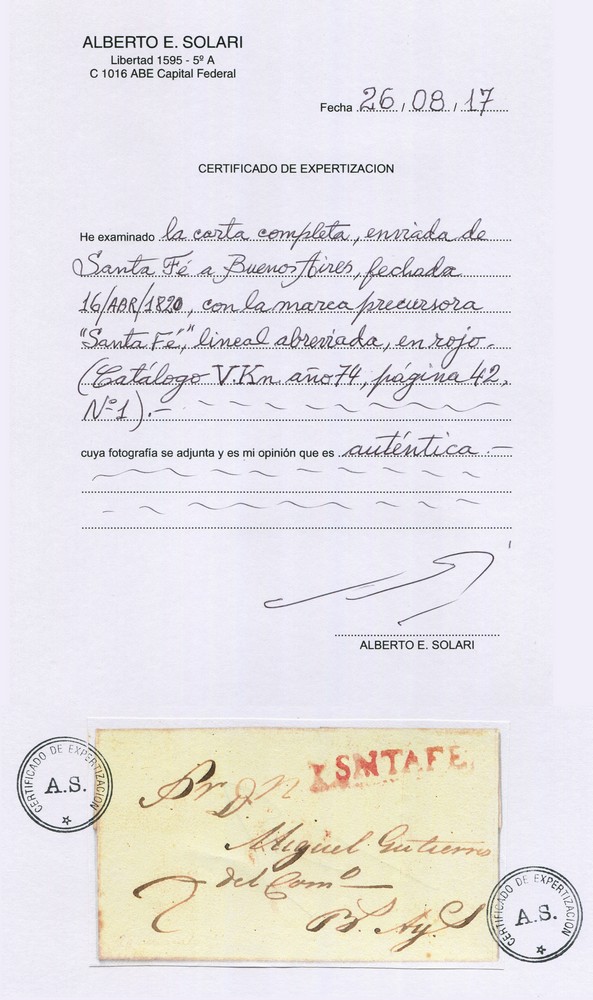 ALBERTO E. SOLARI
Libertad 1595 - 5º A
C 1016 ABE Capital Federal
Fecha 26 / 08 / 17
CERTIFICADO DE EXPERTIZACION
He examinado la carta completa, enviada de
Santa Fé a Buenos Aires, fechada
16/ABR/1820, con la marca precursora
"Santa Fé", lineal abreviada, en rojo.
(Catálogo V.Kn año 74, página 42,
Nº 1).-
cuya fotografía se adjunta y es mi opinión que es auténtica.-
ALBERTO E. SOLARI
CERTIFICADO DE EXPERTIZACION
A.S.
SNTAFE
Sr Dn
Miguel Gutierres
del Comº
Bs Ays
CERTIFICADO DE EXPERTIZACION
A.S.